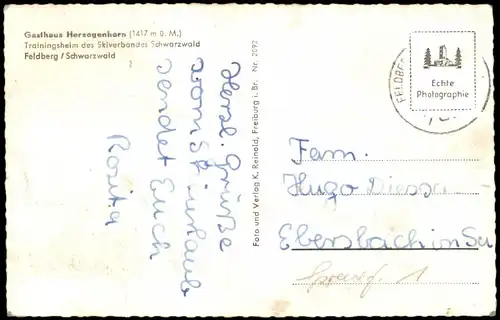 Gasthaus Herzogenhorn (1417 m ü. M.)
Trainingsheim des Skiverbandes Schwarzwald
Feldberg / Schwarzwald
Herzl. Grüße
vom Skiurlaub
sendet Euch
Rosita
Foto und Verlag K. Reinold, Freiburg i. Br. Nr. 2092
FELDBE
Echte
Photographie
Fam.
Hugo
Ebersbach in Sa
1